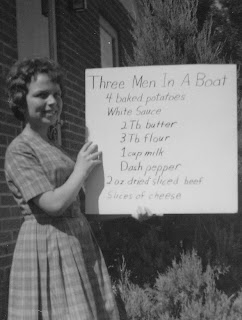 Three Men In A Boat
4 baked potatoes
White Sauce
2 Tb butter
3 Tb flour
1 cup milk
Dash pepper
2 oz dried sliced beef
Slices of cheese